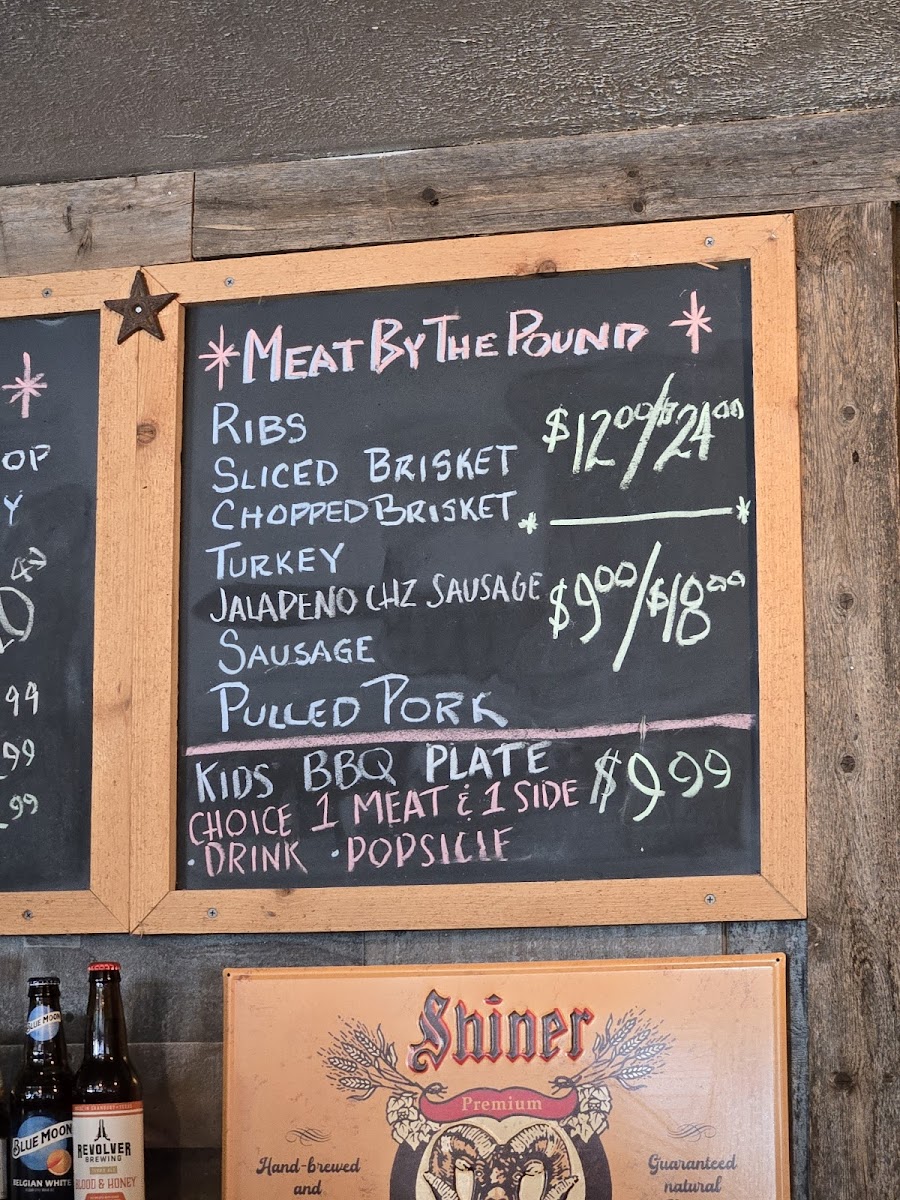 *MEAT BY THE POUND *
RIBS
$12.00/$24.00
SLICED BRISKET
CHOPPED BRISKET
TURKEY
JALAPENO CHZ SAUSAGE
$9.00/$18.00
SAUSAGE
PULLED PORK
KIDS BBQ PLATE $9.99
CHOICE 1 MEAT & 1 SIDE
·DRINK ·POPSICLE
OP
Y
99
99
99
Shiner
Premium
Hand-brewed
and
Guaranteed
natural
BLUE MOON
BLUE MOON
BELGIAN WHITE
REVOLVER
BREWING
BLOOD & HONEY